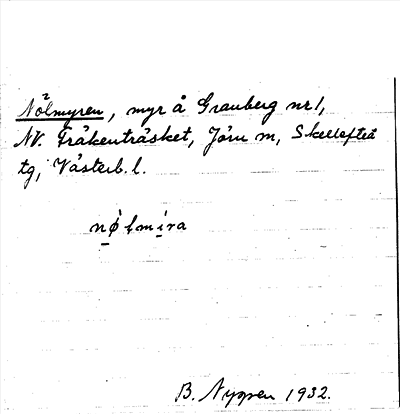 Nölmyren, myr å Granberg nr 1,
NV. Fräkenträsket, Jörn sn, Skellefteå
tg, Västerb. l.
nø̀lmira
B. Nygren 1932.